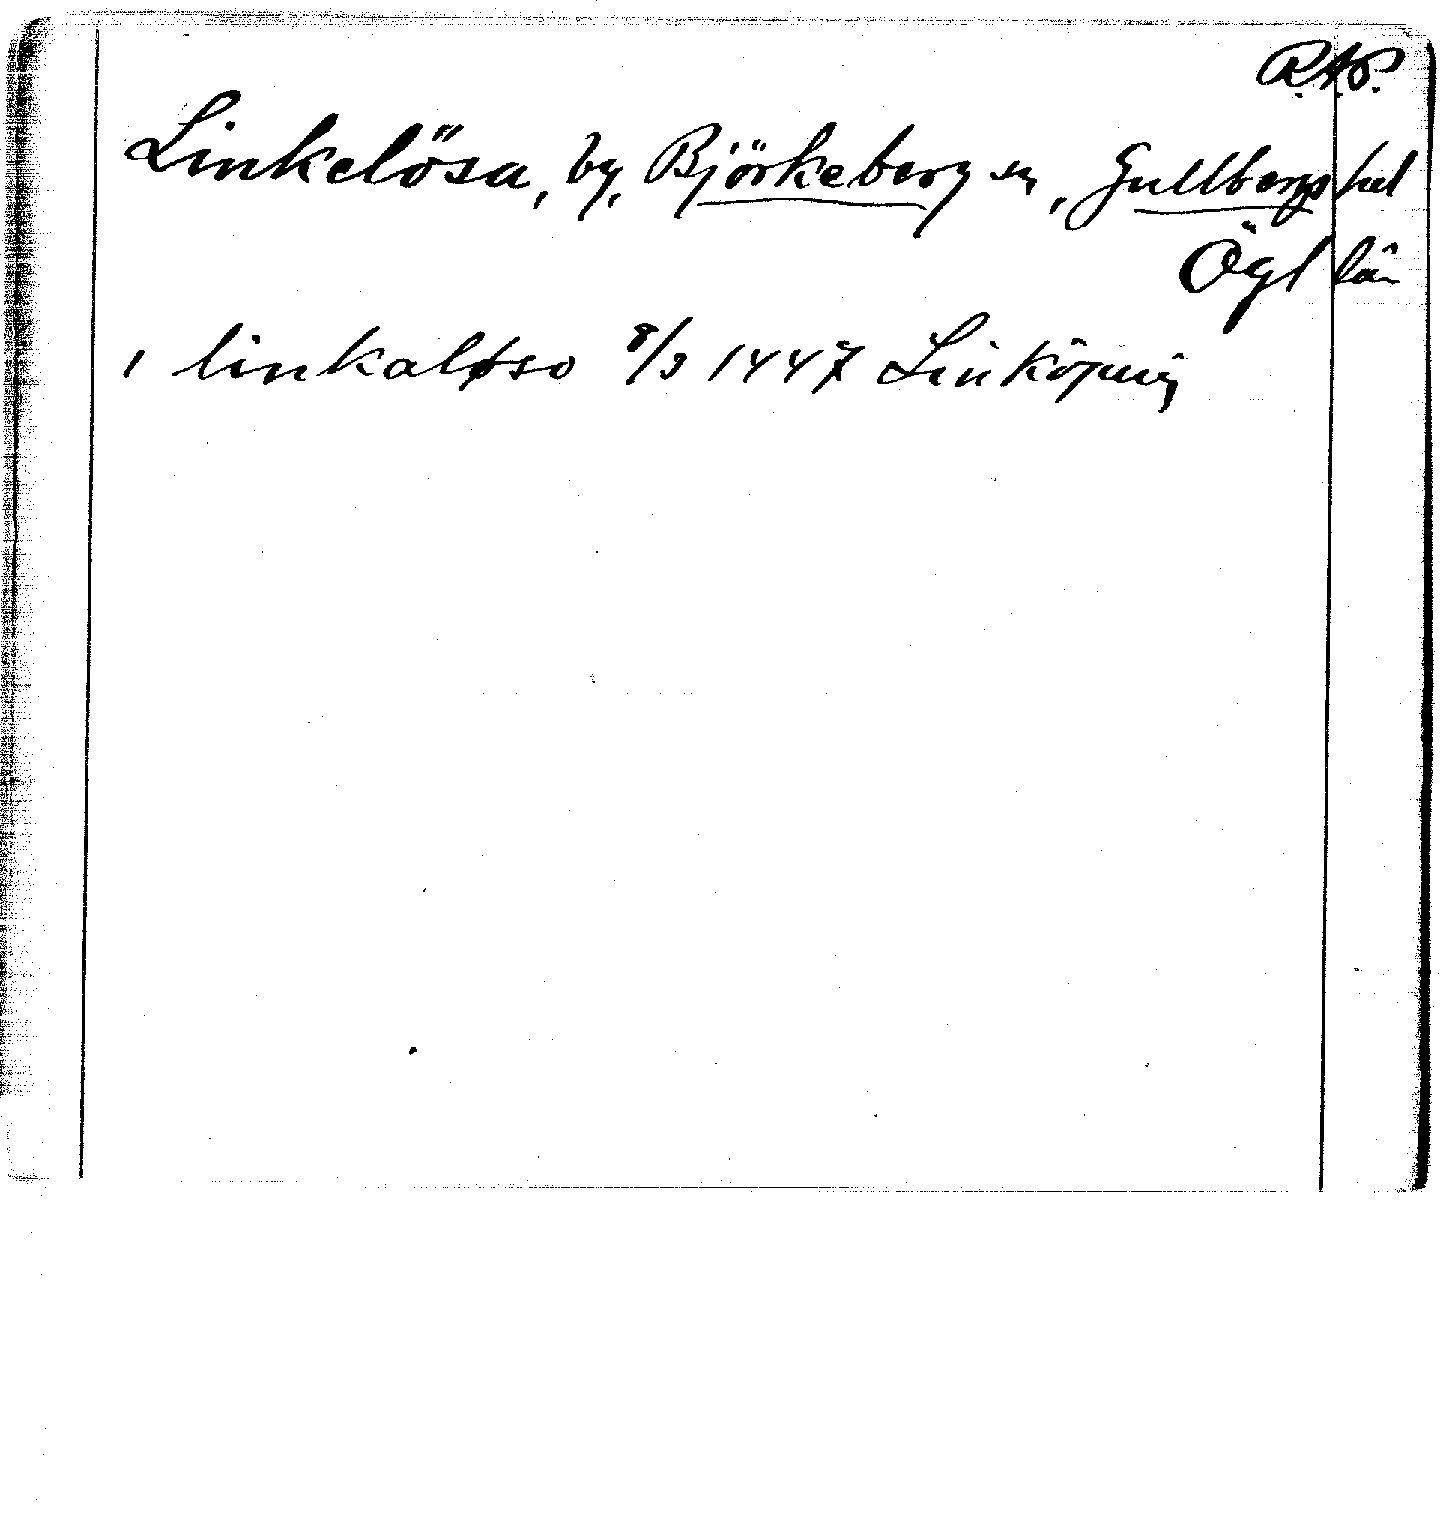 R.A.P.
Linkelösa, by, Björkeberg sn, Gullbergs hd
Ögl län
i linkaløso 8/9 1447 Linköping